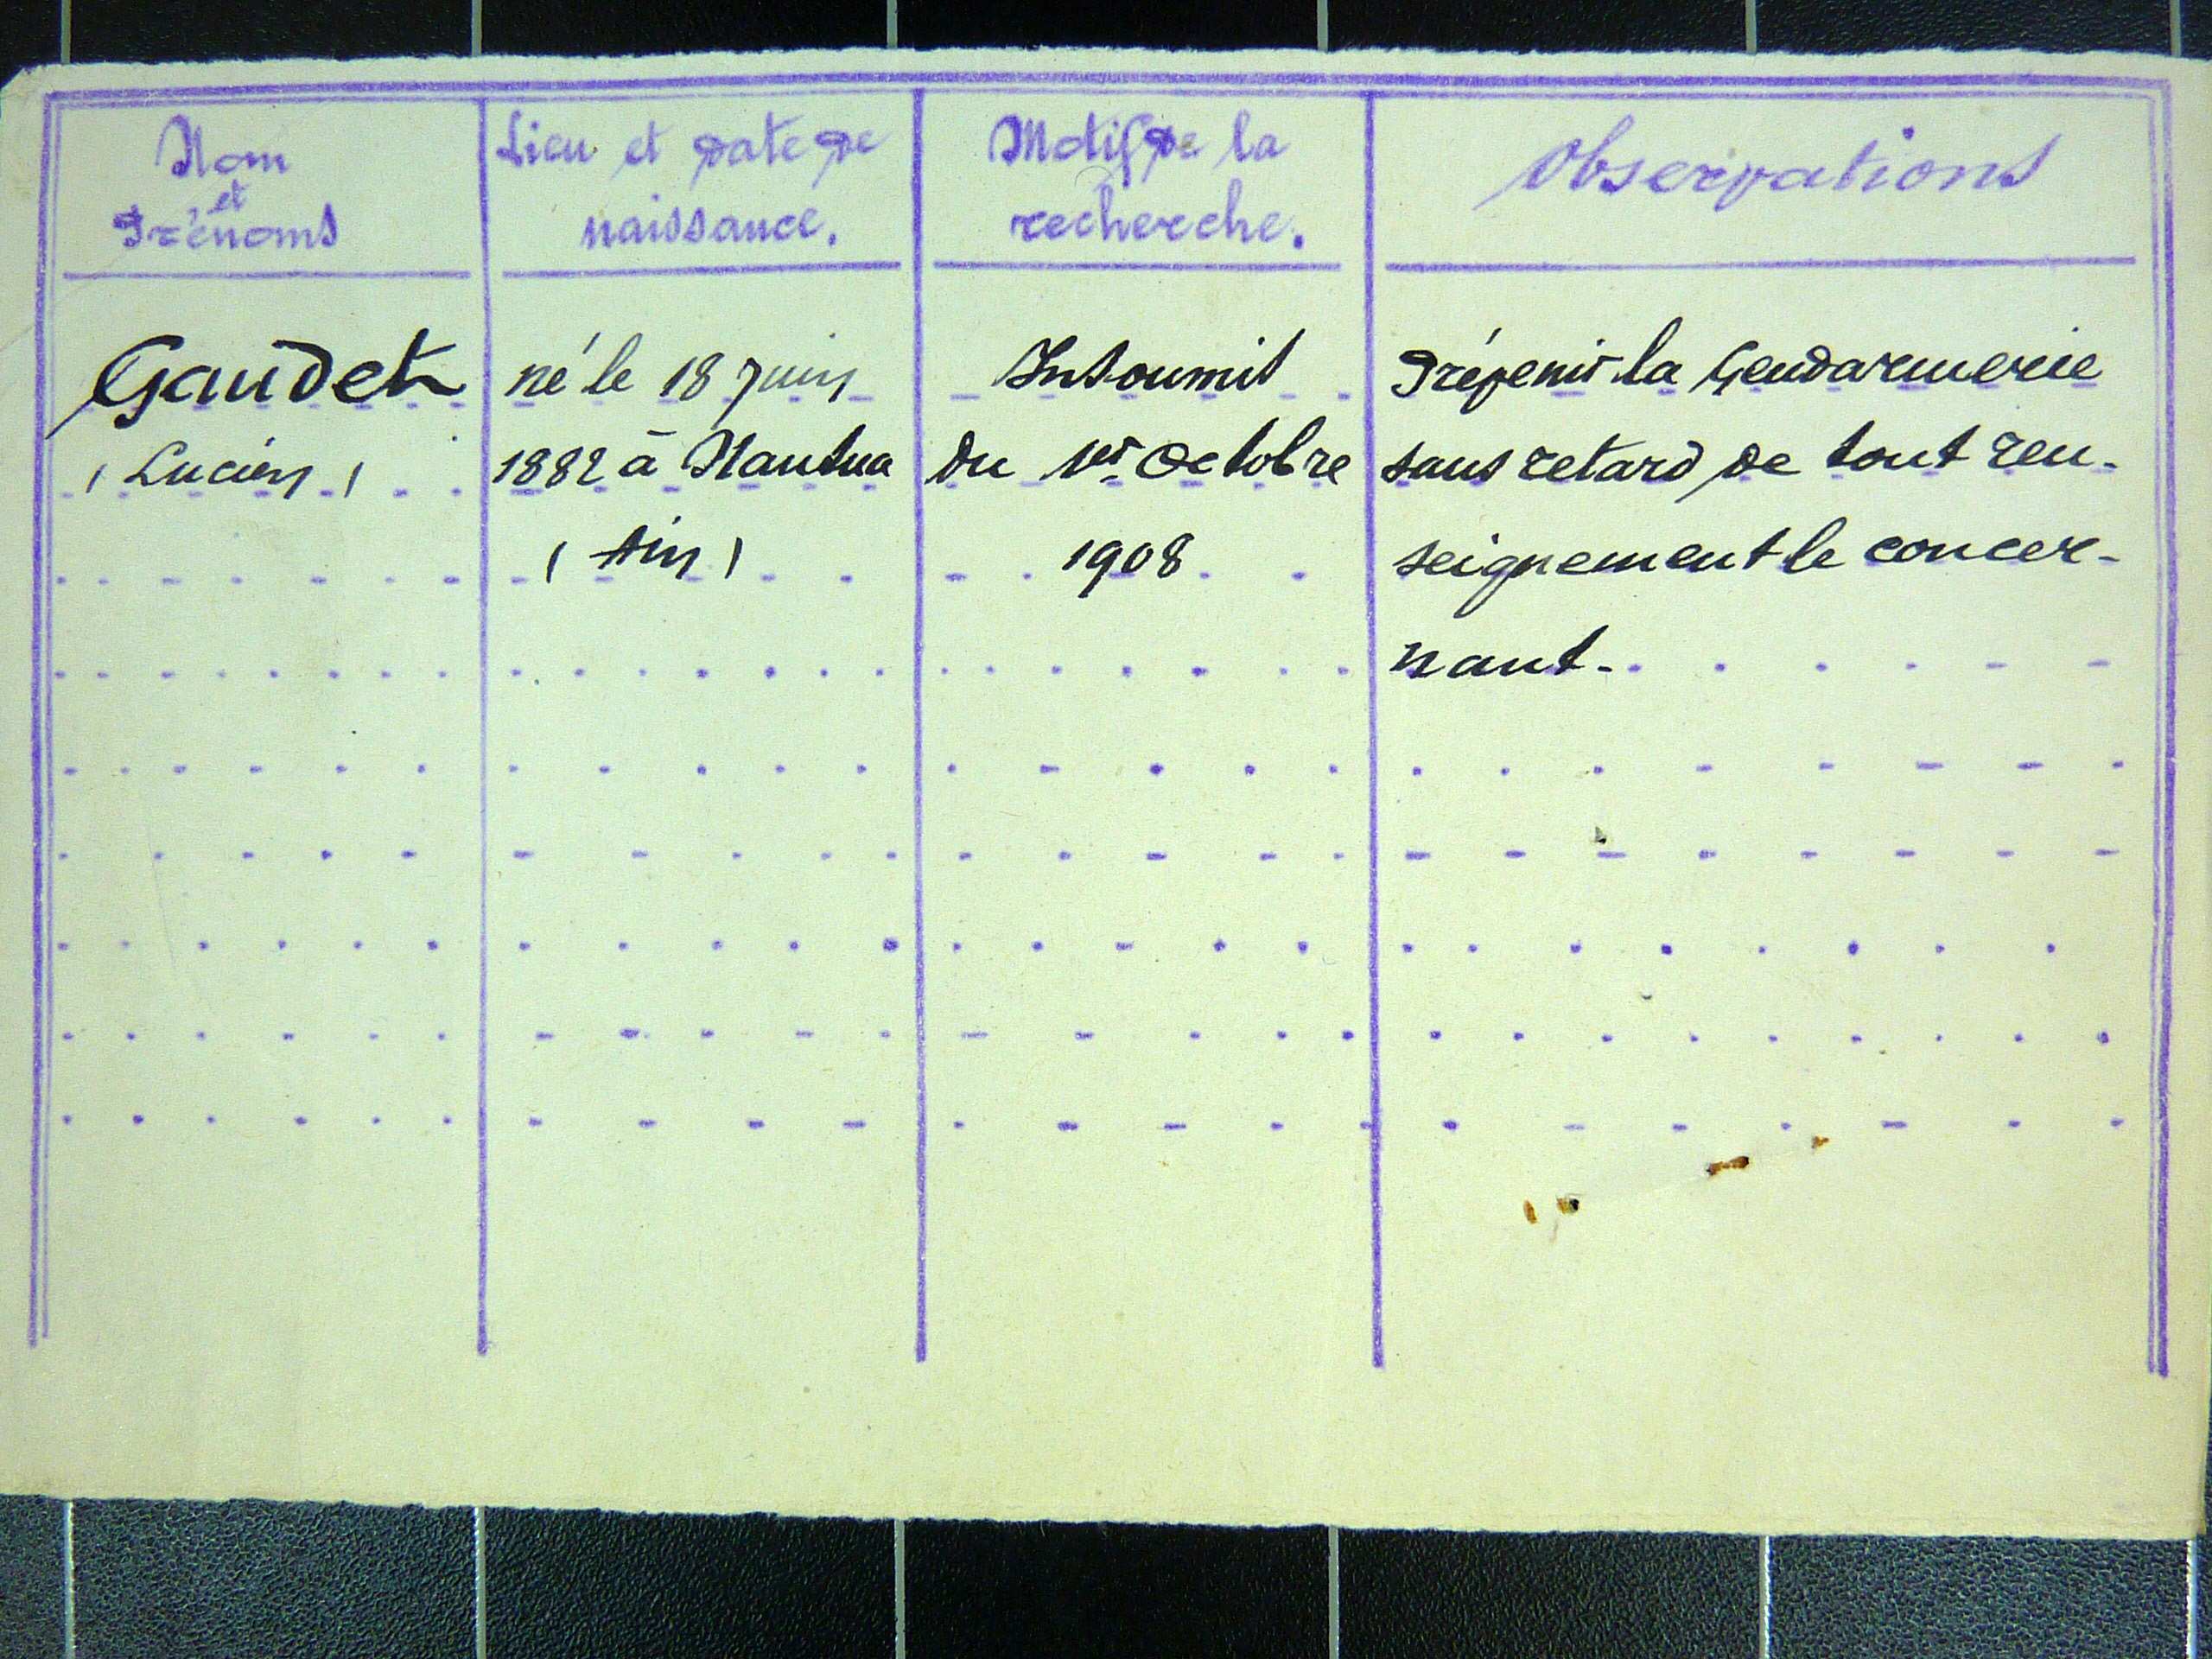 Nom
et
Prénoms
Lieu et date de
naissance.
Motif de la
recherche.
Observations
Gaudet
(Lucien)
né le 18 Juin
1882 à Nantua
(Ain)
Insoumis
du 1er Octobre
1908
Prévenir la Gendarmerie
sans retard de tout ren-
seignement le concer-
nant.